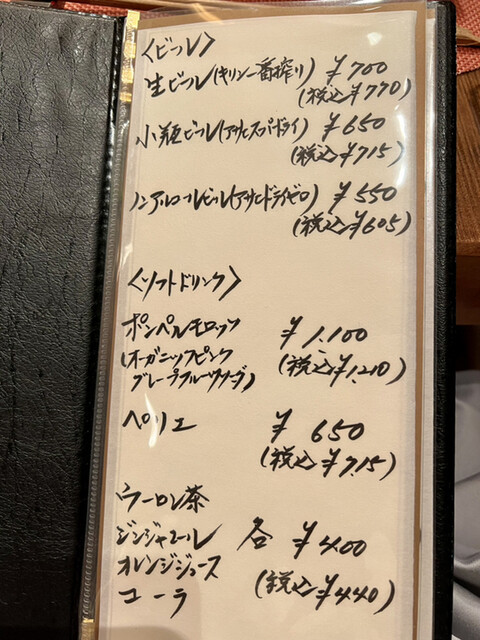 〈ビール〉
生ビール(キリン一番搾り) ¥700
(税込¥770)
小瓶ビール(アサヒスーパードライ) ¥650
(税込¥715)
ノンアルコールビール(アサヒドライゼロ) ¥550
(税込¥605)
〈ソフトドリンク〉
ポンペルモロッソ ¥1.100
(オーガニックピンク (税込¥1.210)
グレープフルーツソーダ)
ペリエ ¥650
(税込¥715)
ウーロン茶
ジンジャエール 各 ¥400
オレンジジュース
コーラ (税込¥440)